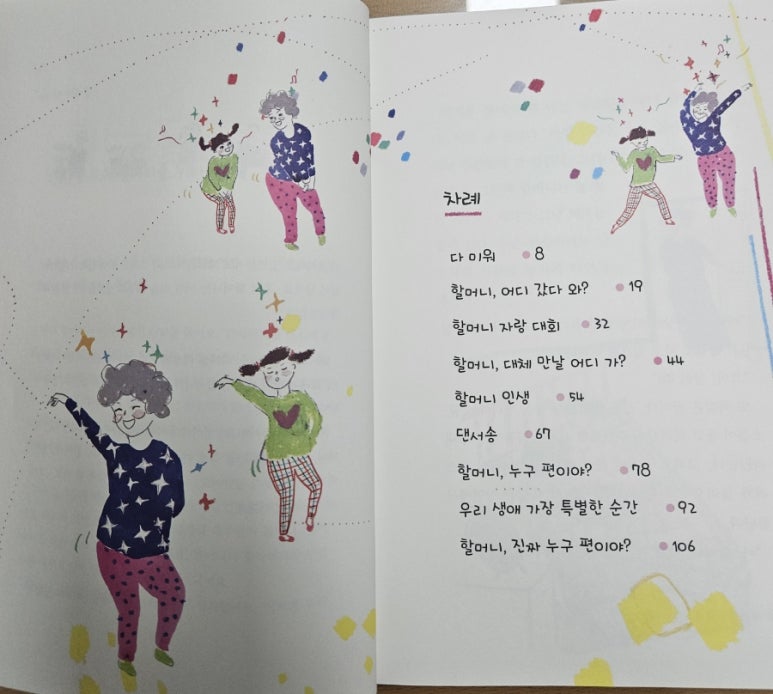 차례
다 미워 8
할머니, 어디 갔다 와? 19
할머니 자랑 대회 32
할머니, 대체 만날 어디 가? 44
할머니 인생 54
댄서송 67
할머니, 누구 편이야? 78
우리 생애 가장 특별한 순간 92
할머니, 진짜 누구 편이야? 106